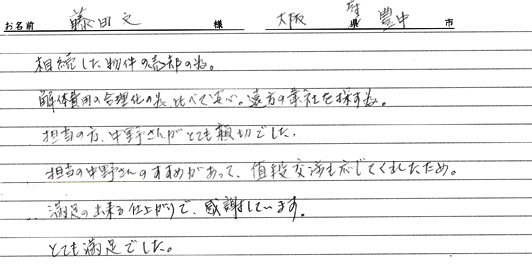 お名前 藤田文 様 大阪 府 県 豊中 市
相続した物件の売却の為。
解体費用の合理化の為 比べて安心。遠方の業社を探す為。
担当の方、中野さんがとても親切でした。
担当の中野さんのすすめがあって、値段交渉も応じてくれましたため。
満足の出来る仕上がりで、感謝しています。
とても満足でした。